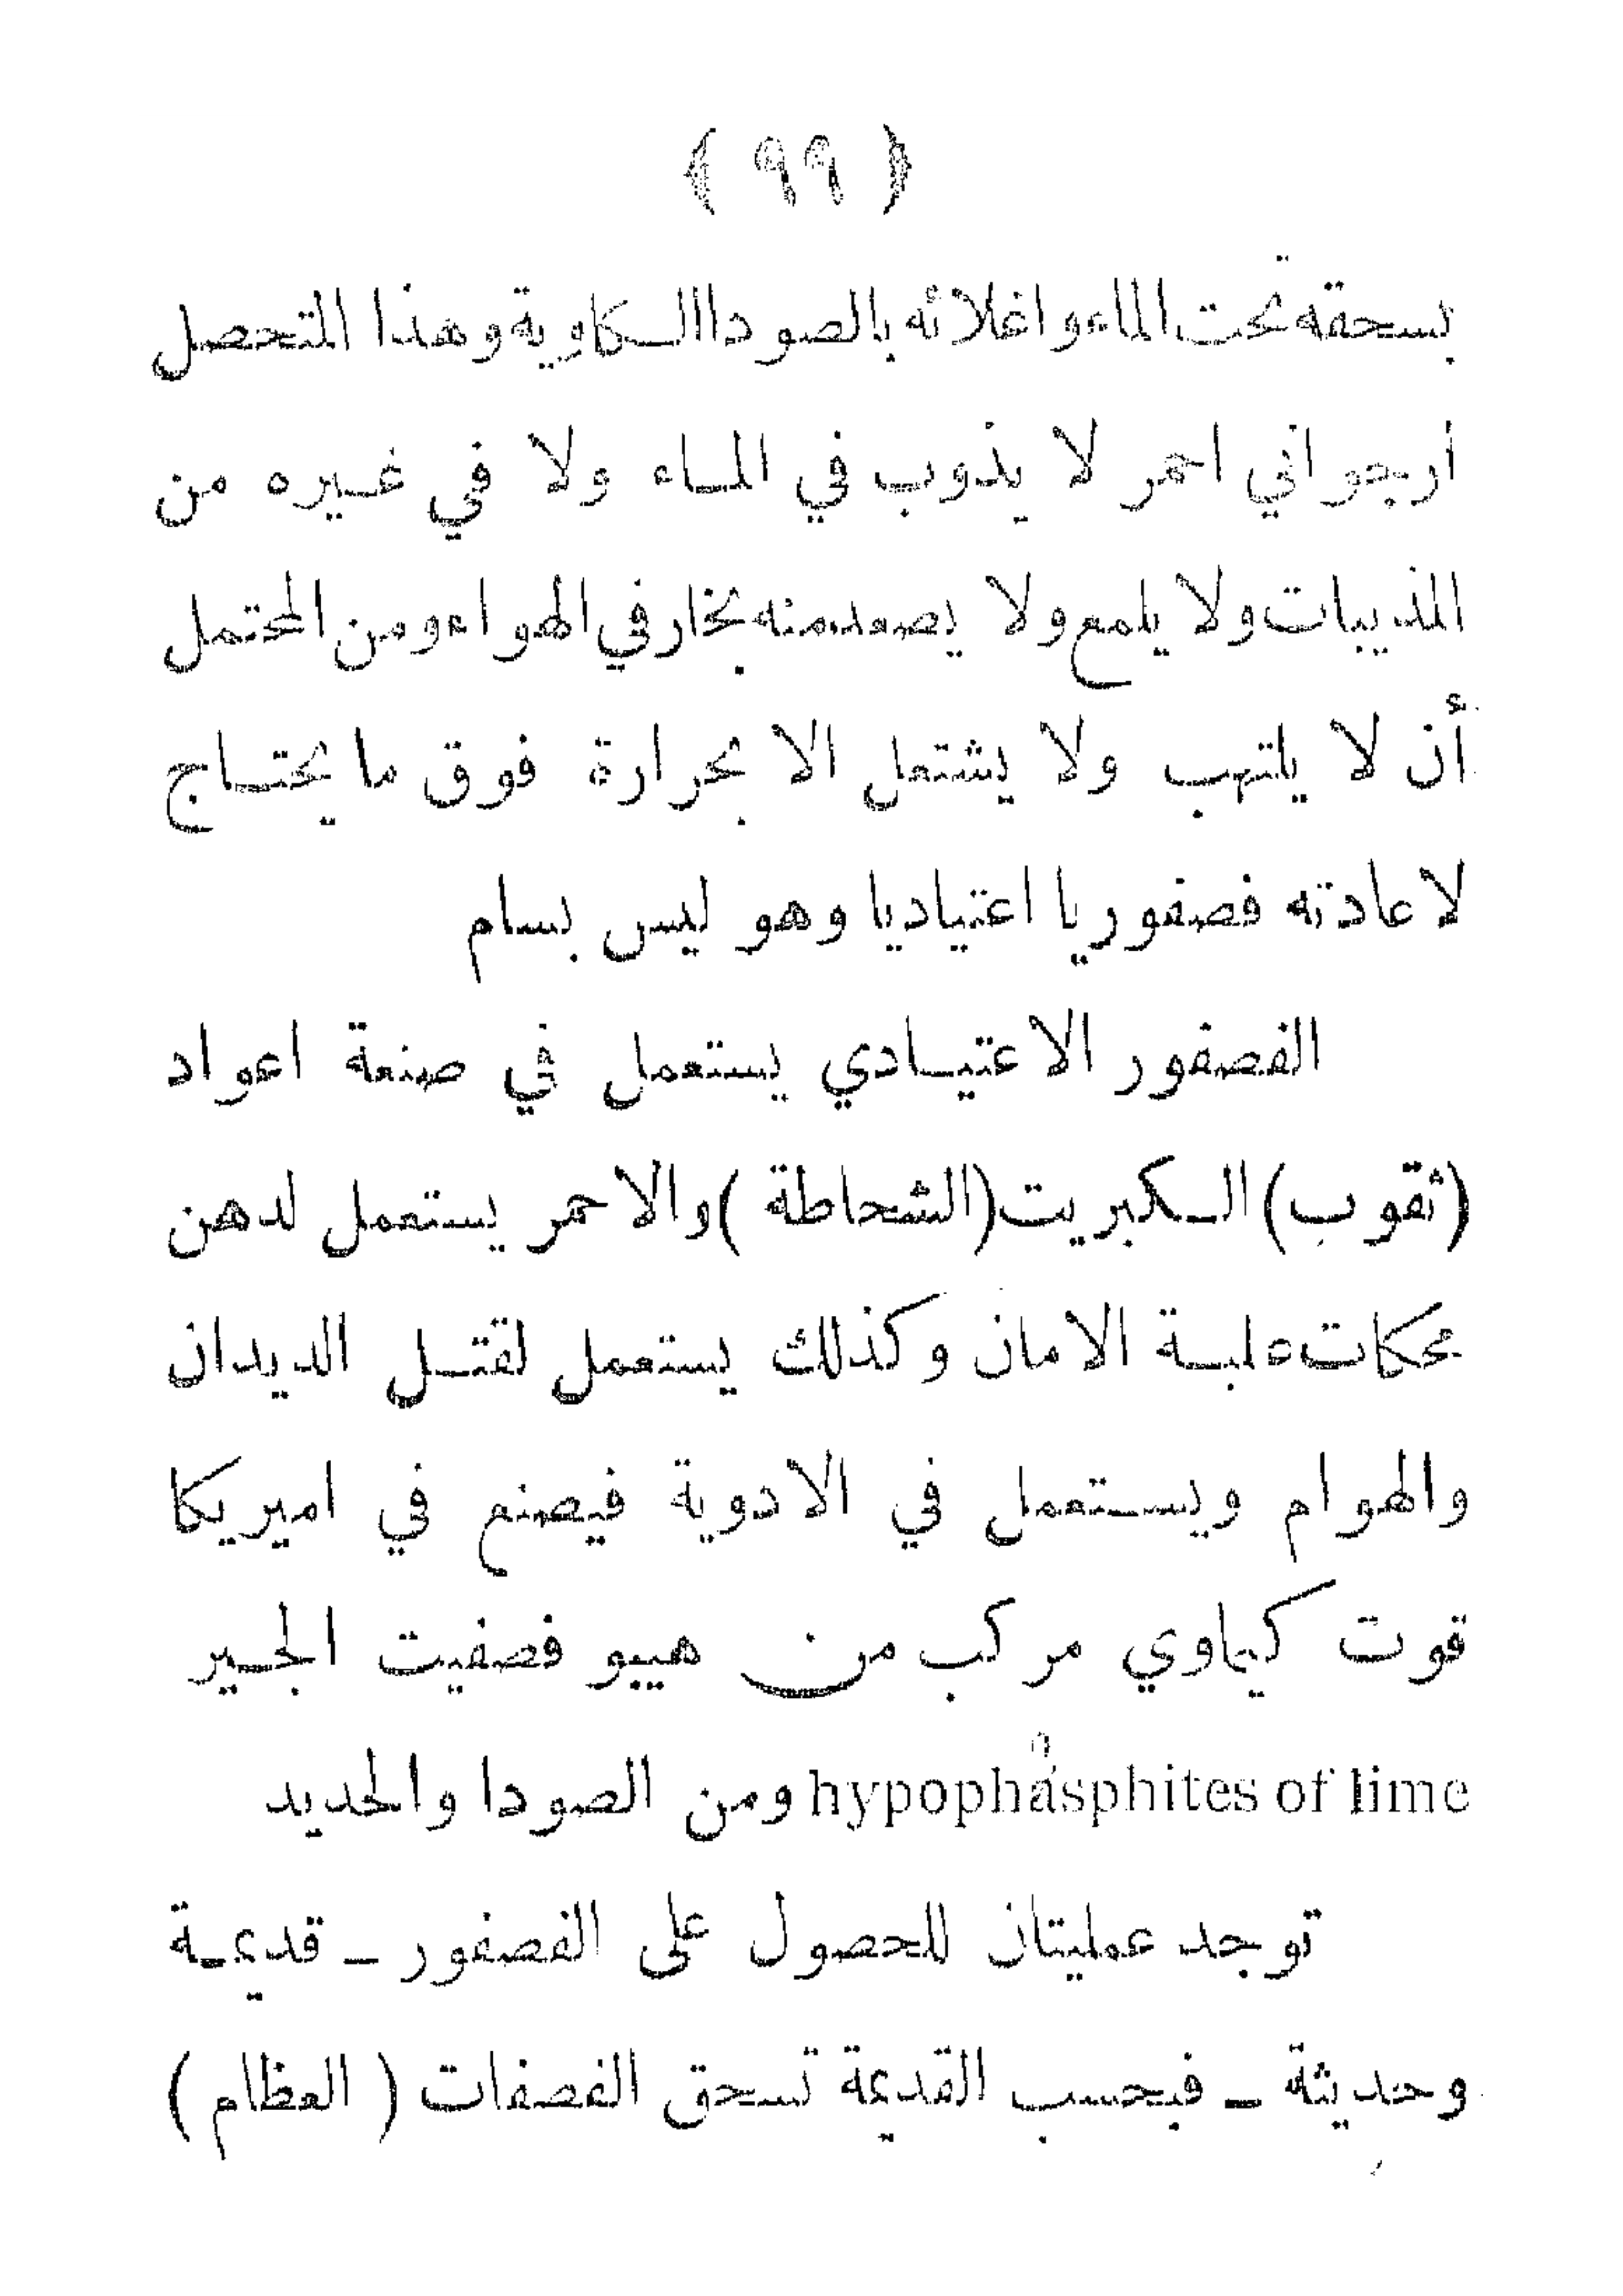 ( ٩٩ )
بسحقه تحت الماء واغلائه بالصودا الكاوية وهذا المتحصل
أرجواني احمر لا يذوب في الماء ولا في غيره من
المذيبات ولا يلمع ولا يصعد منه بخار في الهواء ومن المحتمل
أن لا يلتهب ولا يشتعل الا بحرارة فوق ما يحتاج
لاعادته فصفوريا اعتياديا وهو ليس بسام
الفصفور الاعتيادي يستعمل في صنعة اعواد
(ثقوب) الكبريت (الشحاطة) والاحمر يستعمل لدهن
محكات علبة الامان وكذلك يستعمل لقتل الديدان
والهوام ويستعمل في الادوية فيصنع في اميريكا
قوت كيماوي مركب من هيبو فصفيت الجير
hypophasphites of lime ومن الصودا والحديد
توجد عمليتان للحصول على الفصفور ـ قديمة
وحديثة ـ فبحسب القديمة تسحق الفصفات ( العظام )